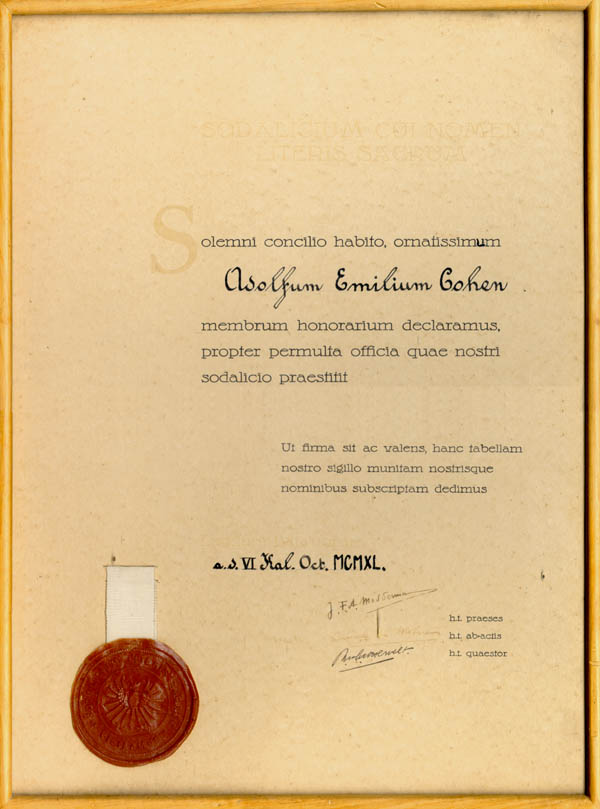 SODALICIUM CUI NOMEN
LITERIS SACRUM
Solemni concilio habito, ornatissimum
Adolfum Emilium Cohen
membrum honorarium declaramus,
propter permulta officia quae nostri
sodalicio praestitit
Ut firma sit ac valens, hanc tabellam
nostro sigillo munitam nostrisque
nominibus subscriptam dedimus
a.d. VI Kal. Oct. MCMXL.
h.t. praeses
h.t. ab-actis
h.t. quaestor